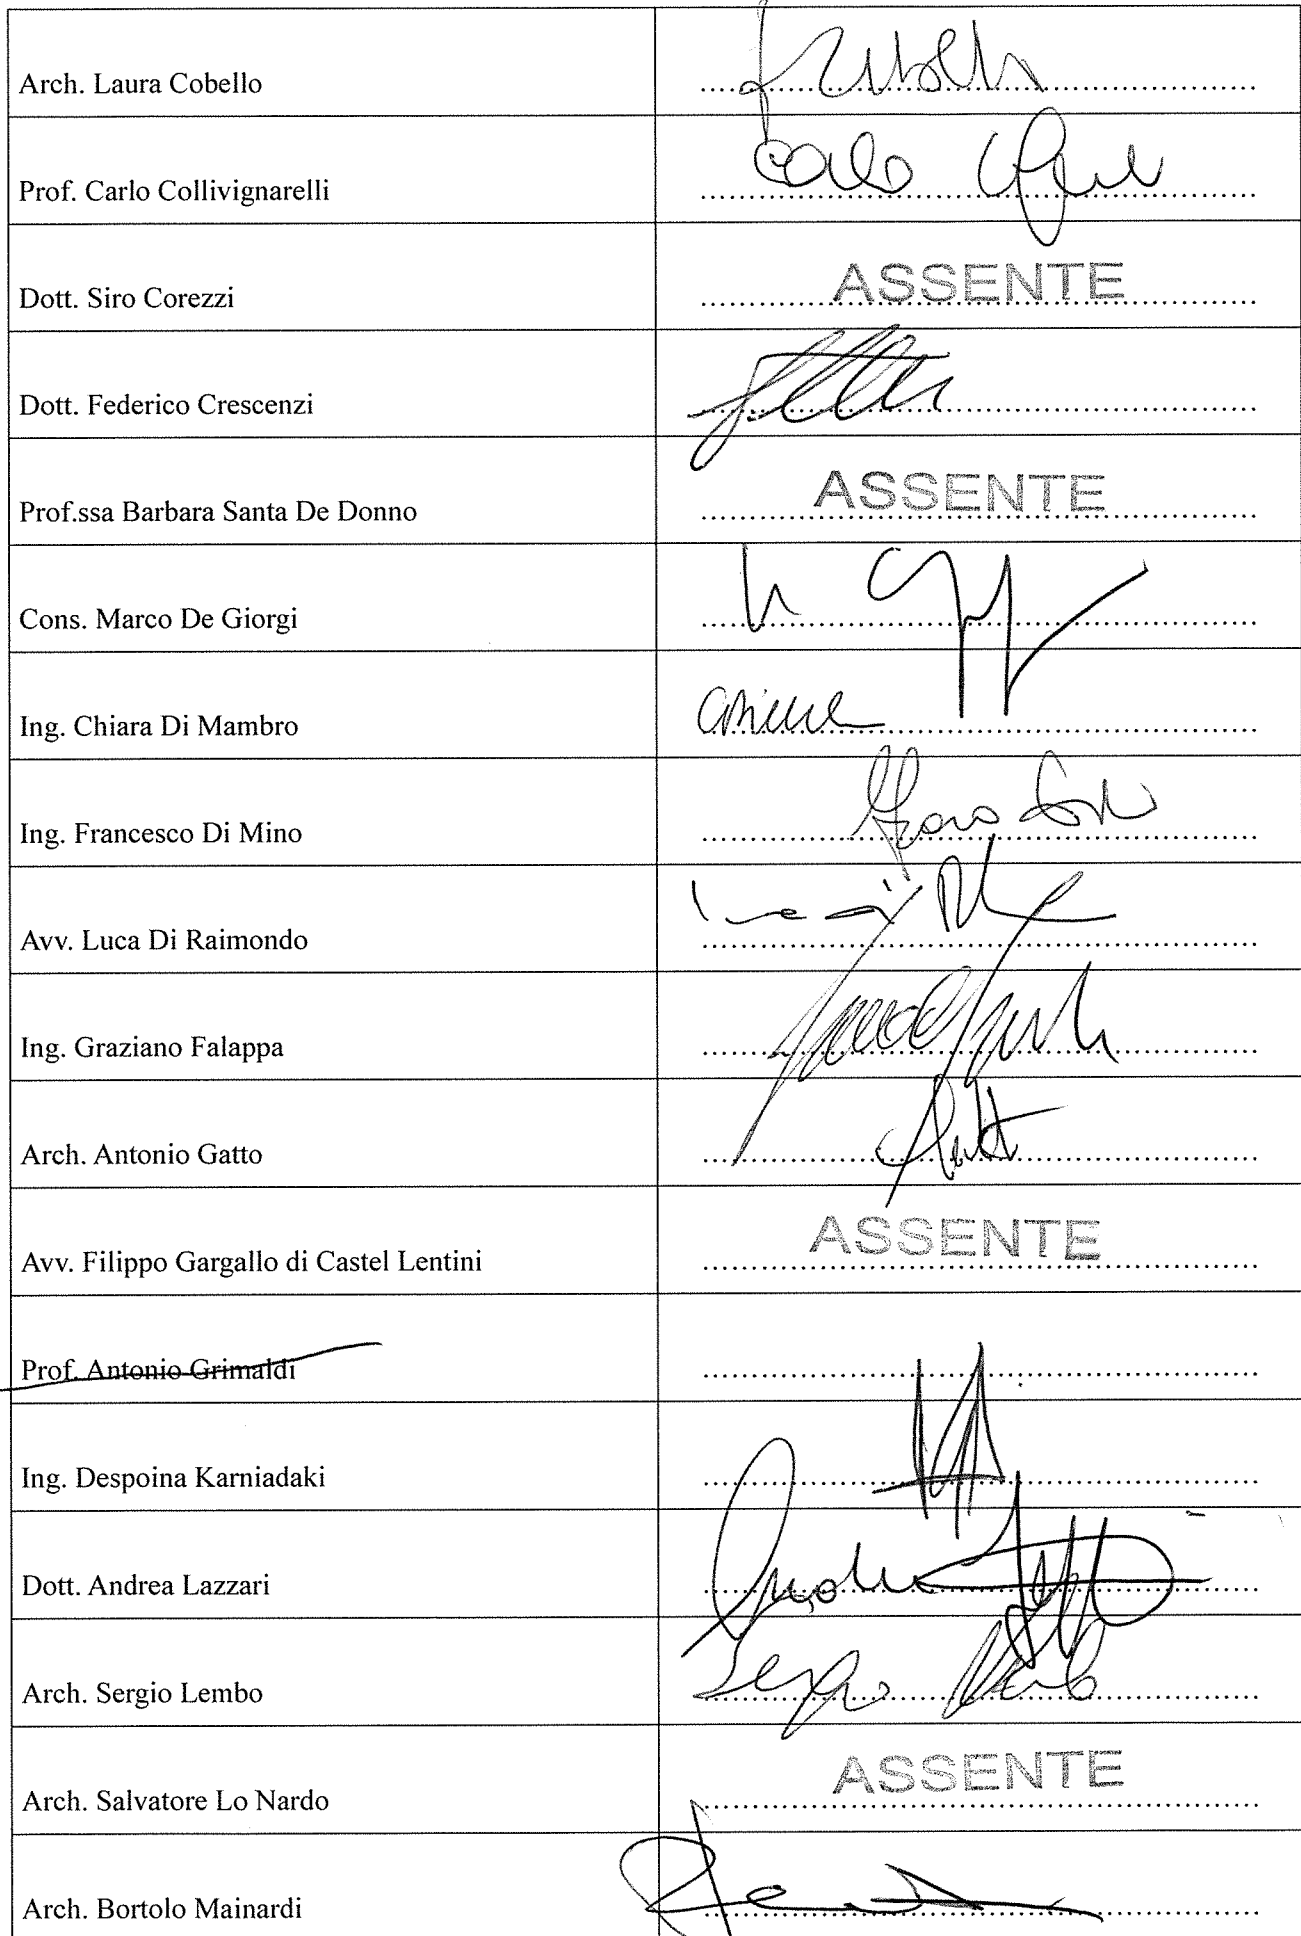 Arch. Laura Cobello
Prof. Carlo Collivignarelli
Dott. Siro Corezzi ASSENTE
Dott. Federico Crescenzi
Prof.ssa Barbara Santa De Donno ASSENTE
Cons. Marco De Giorgi
Ing. Chiara Di Mambro
Ing. Francesco Di Mino
Avv. Luca Di Raimondo
Ing. Graziano Falappa
Arch. Antonio Gatto
Avv. Filippo Gargallo di Castel Lentini ASSENTE
Prof. Antonio Grimaldi
Ing. Despoina Karniadaki
Dott. Andrea Lazzari
Arch. Sergio Lembo
Arch. Salvatore Lo Nardo ASSENTE
Arch. Bortolo Mainardi